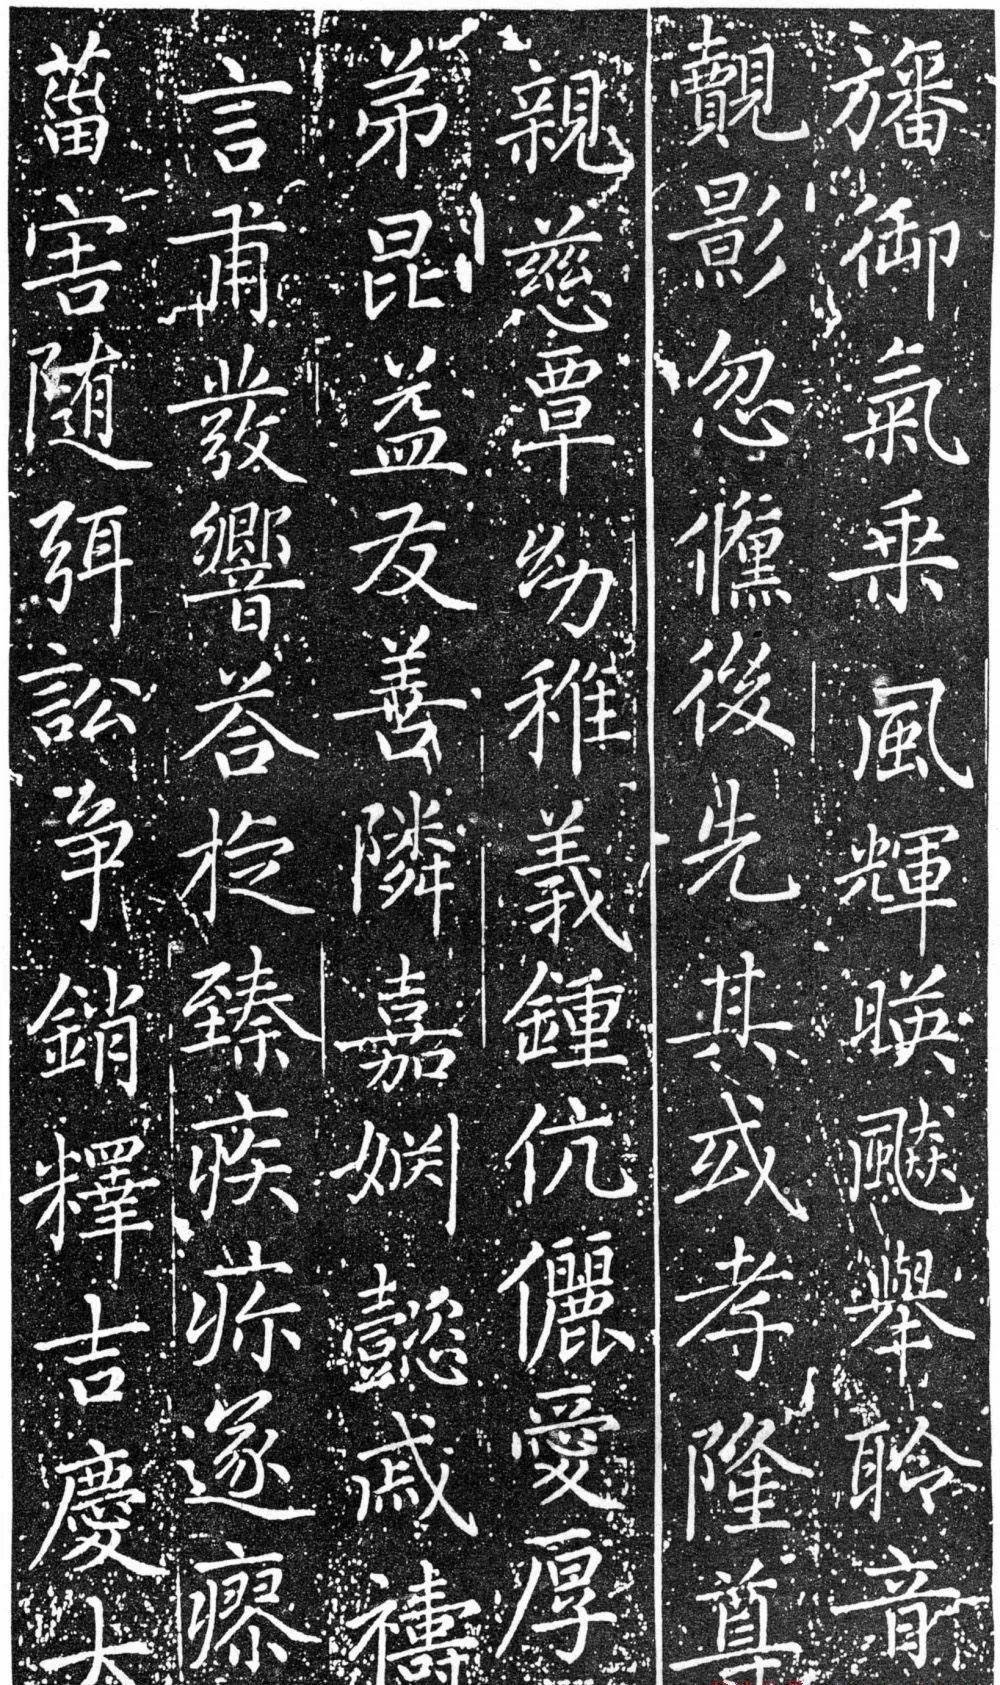 旛御氣乘風輝暎飈舉聆音
覿影忽儵後先其或孝隆尊
親慈覃幼稚義鍾伉儷愛厚
弟昆益友善隣嘉姻懿戚禱
言甫發響荅旋臻疾疹遂瘳
菑害随弭訟争銷釋吉慶大